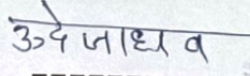 उदे जाधव